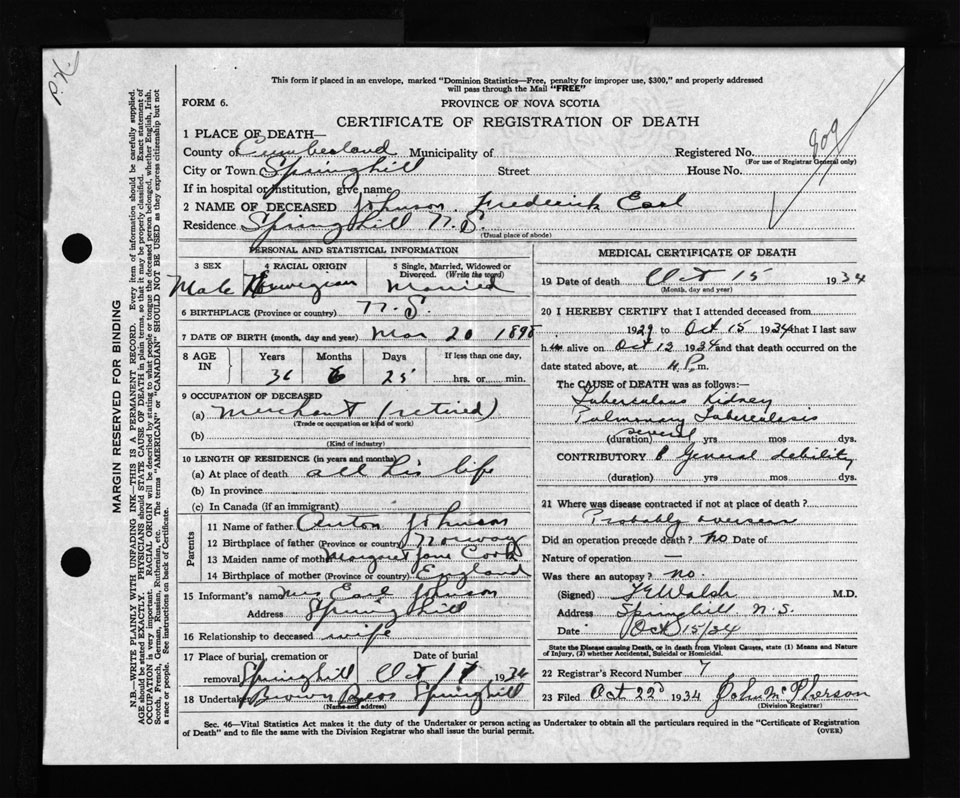 P.H.
This form if placed in an envelope, marked "Dominion Statistics—Free, penalty for improper use, $300," and properly addressed
will pass through the Mail "FREE"
FORM 6.
PROVINCE OF NOVA SCOTIA
CERTIFICATE OF REGISTRATION OF DEATH
809
1 PLACE OF DEATH—
County of Cumberland Municipality of Registered No.
(For use of Registrar General only)
City or Town Springhill Street House No.
If in hospital or institution, give name
2 NAME OF DECEASED Johnson, Frederick Earl
Residence Springhill N.S.
(Usual place of abode)
PERSONAL AND STATISTICAL INFORMATION
3 SEX 4 RACIAL ORIGIN 5 Single, Married, Widowed or
Divorced. (Write the word)
Male Norwegian Married
6 BIRTHPLACE (Province or country) N.S.
7 DATE OF BIRTH (month, day and year) Mar 20 1898
8 AGE IN Years Months Days If less than one day,
36 6 25 hrs. or min.
9 OCCUPATION OF DECEASED
(a) Merchant (retired)
(Trade or occupation or kind of work)
(b)
(Kind of industry)
10 LENGTH OF RESIDENCE (in years and months)
(a) At place of death all his life
(b) In province
(c) In Canada (if an immigrant)
Parents
11 Name of father Anton Johnson
12 Birthplace of father (Province or country) Norway
13 Maiden name of mother Margaret Jane Cook
14 Birthplace of mother (Province or country) England
15 Informant's name Mrs Earl Johnson
Address Springhill
16 Relationship to deceased wife
17 Place of burial, cremation or Date of burial
removal Springhill Oct 17 1934
18 Undertaker Brown Bros Springhill
(Name and address)
MEDICAL CERTIFICATE OF DEATH
19 Date of death Oct 15 1934
(Month, day and year)
20 I HEREBY CERTIFY that I attended deceased from
1929 to Oct 15 1934 that I last saw
him alive on Oct 12 1934 and that death occurred on the
date stated above, at 4 P. m.
The CAUSE OF DEATH was as follows:
Tuberculous Kidney
Pulmonary Tuberculosis
(duration) several yrs mos dys.
CONTRIBUTORY General debility
(duration) yrs mos dys.
21 Where was disease contracted if not at place of death?
Probably overseas
Did an operation precede death? no Date of
Nature of operation —
Was there an autopsy? no.
(Signed) Walsh M.D.
Address Springhill N.S.
Date Oct 15/34
State the Disease causing Death, or in death from Violent Causes, state (1) Means and Nature
of Injury, (2) whether Accidental, Suicidal or Homicidal.
22 Registrar's Record Number 7
23 Filed Oct 22d 1934 John McPherson
(Division Registrar)
Sec. 46—Vital Statistics Act makes it the duty of the Undertaker or person acting as Undertaker to obtain all the particulars required in the "Certificate of Registration
of Death" and to file the same with the Division Registrar who shall issue the burial permit.
(OVER)
MARGIN RESERVED FOR BINDING
N.B.—WRITE PLAINLY WITH UNFADING INK—THIS IS A PERMANENT RECORD. Every item of information should be carefully supplied.
AGE should be stated EXACTLY. PHYSICIANS should STATE CAUSE OF DEATH in plain terms, so that it may be properly classified. Exact statement of
OCCUPATION is very important. RACIAL ORIGIN will be described by stating to what people or tongue the deceased person belonged, whether English, Irish,
Scotch, French, German, Russian, Ruthenian, etc. The terms "AMERICAN" or "CANADIAN" SHOULD NOT BE USED as they express citizenship but not
a race or people. See instructions on back of Certificate.